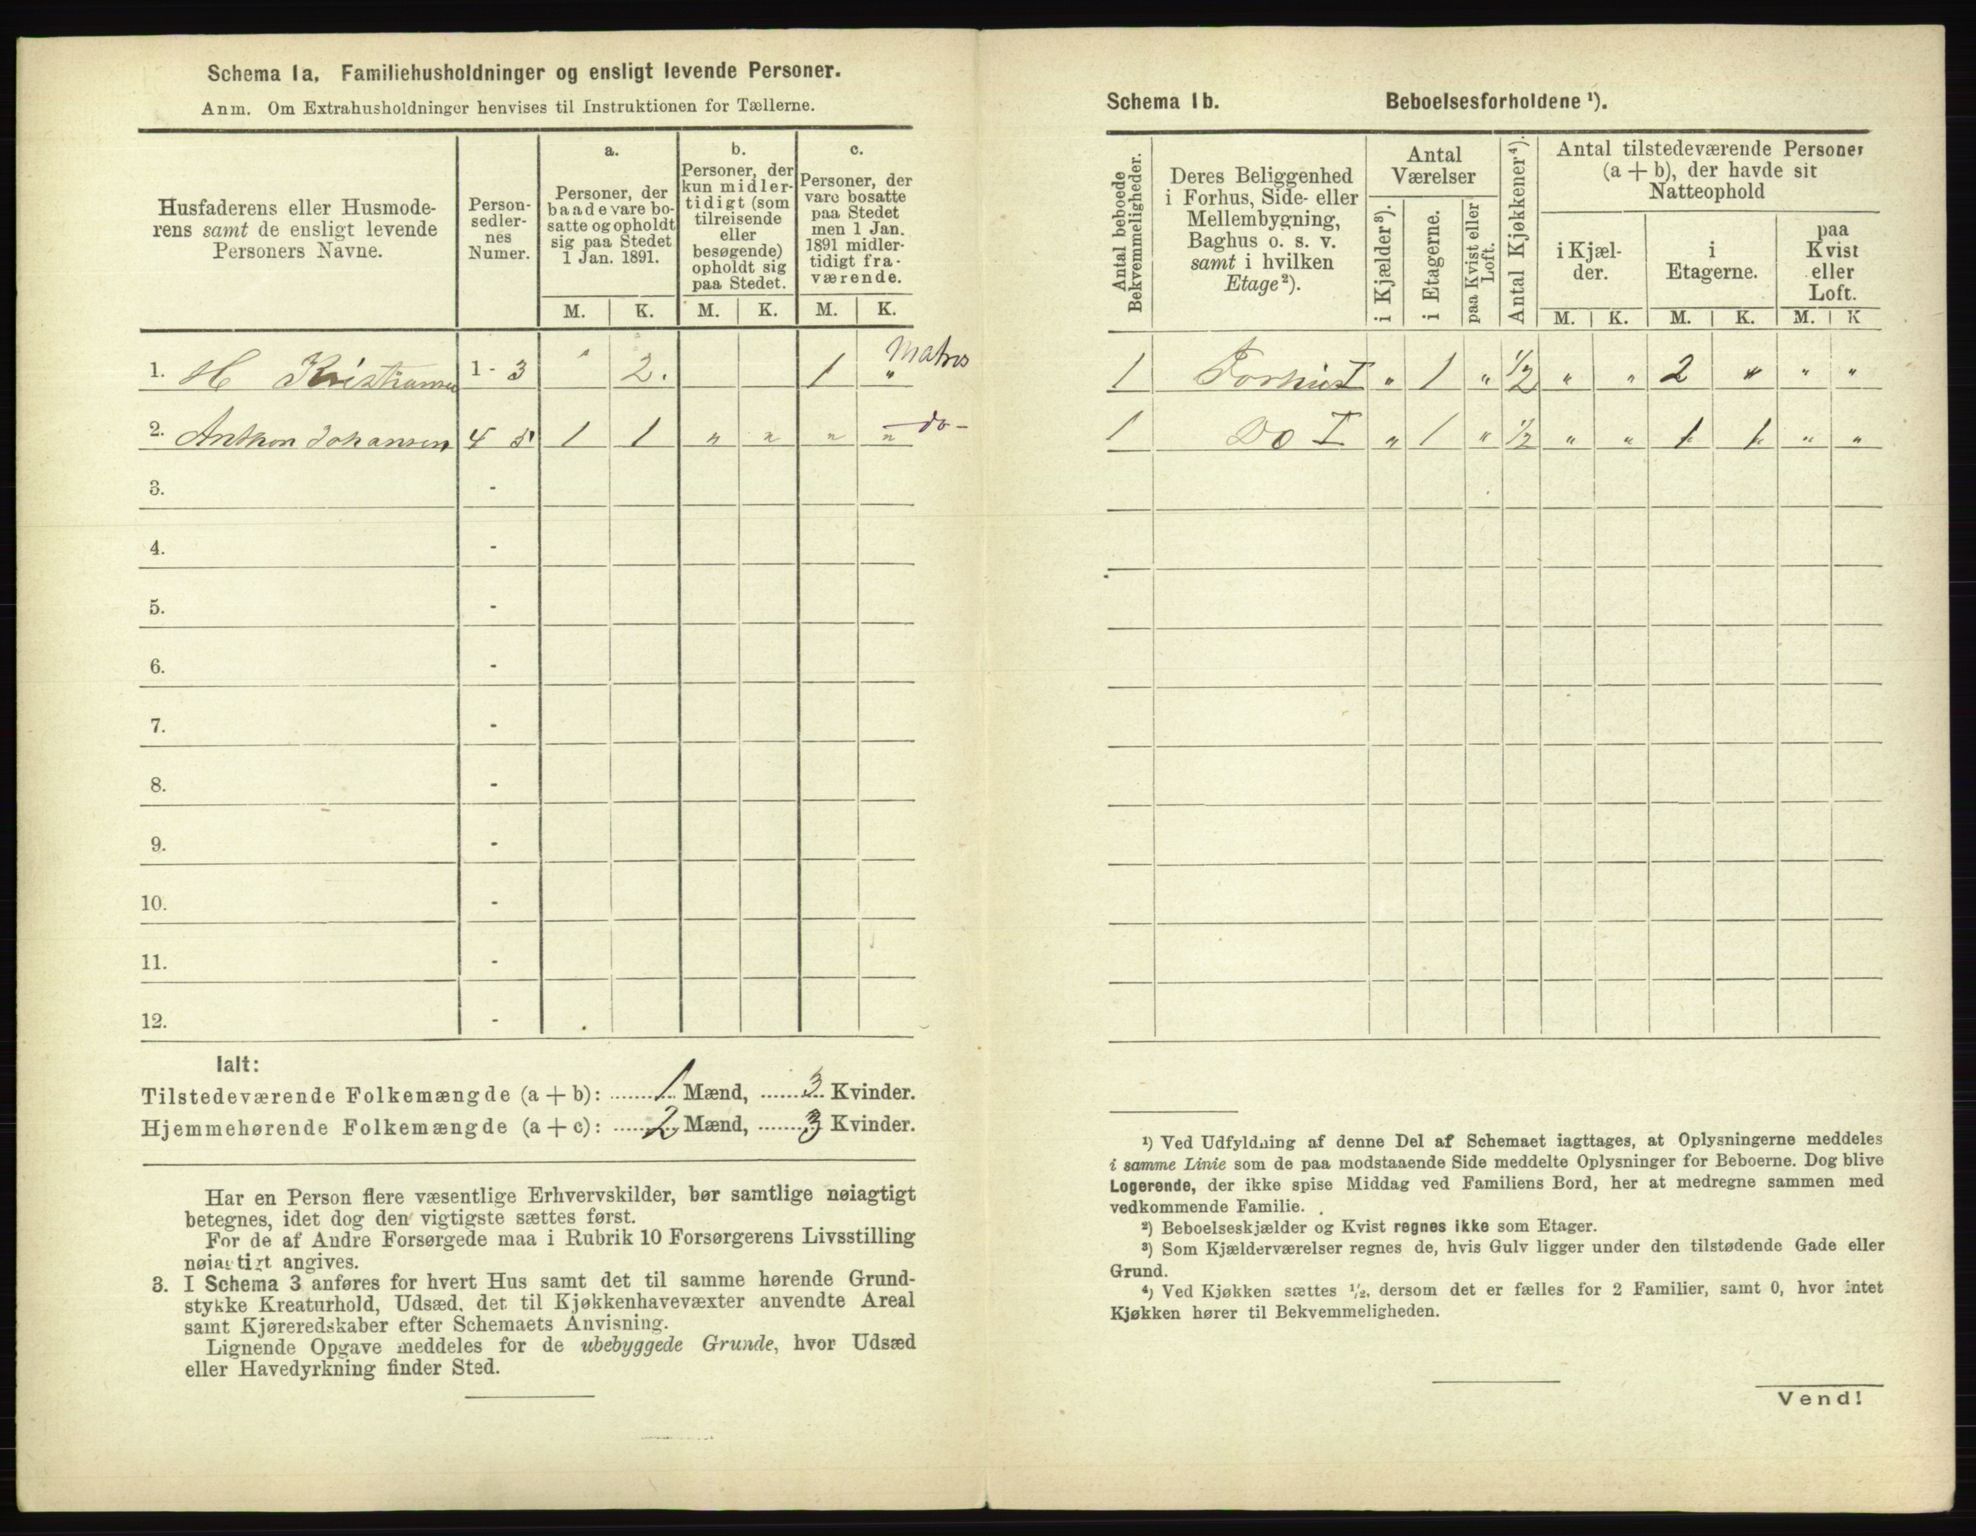 Schema 1a. Familiehusholdninger og ensligt levende Personer.
Anm. Om Extrahusholdninger henvises til Instruktionen for Tællerne.
Husfaderens eller Husmode-
rens samt de ensligt levende
Personers Navne.
Person-
sedler-
nes
Numer.
a.
Personer, der
baade vare bo-
satte og opholdt
sig paa Stedet
1 Jan. 1891.
b.
Personer, der
kun midler-
tidigt (som
tilreisende
eller
besøgende)
opholdt sig
paa Stedet.
c.
Personer, der
vare bosatte
paa Stedet
men 1 Jan.
1891 midler-
tidigt fra-
værende.
M. K. M. K. M. K.
1. H Kristiansen 1 - 3 " 2. 1 " Matros
2. Anthon Johansen 4 5 1 1 " " " " do -
3. -
4. -
5. -
6. -
7. -
8. -
9. -
10. -
11. -
12. -
Ialt:
Tilstedeværende Folkemængde (a + b): 1 Mænd, 3 Kvinder.
Hjemmehørende Folkemængde (a + c): 2 Mænd, 3 Kvinder.
Har en Person flere væsentlige Erhvervskilder, bør samtlige nøiagtigt
betegnes, idet dog den vigtigste sættes først.
For de af Andre Forsørgede maa i Rubrik 10 Forsørgerens Livsstilling
nøiagtigt angives.
3. I Schema 3 anføres for hvert Hus samt det til samme hørende Grund-
stykke Kreaturhold, Udsæd, det til Kjøkkenhavevæxter anvendte Areal
samt Kjøreredskaber efter Schemaets Anvisning.
Lignende Opgave meddeles for de ubebyggede Grunde, hvor Udsæd
eller Havedyrkning finder Sted.
Schema 1b. Beboelsesforholdene ¹).
Antal beboede
Bekvemmeligheder.
Deres Beliggenhed
i Forhus, Side- eller
Mellembygning,
Baghus o. s. v.
samt i hvilken
Etage ²).
Antal
Værelser
i Kjælder ³).
i Etagerne.
paa Kvist eller
Loft.
Antal Kjøkkener ⁴).
Antal tilstedeværende Personer
(a + b), der havde sit
Natteophold
i Kjæl-
der.
i
Etagerne.
paa
Kvist
eller
Loft.
M. K. M. K. M. K
1 Forhus I " 1 " 1/2 " " 2 " " "
1 Do I " 1 " 1/2 " " 1 1 " "
¹) Ved Udfyldning af denne Del af Schemaet iagttages, at Oplysningerne meddeles
i samme Linie som de paa modstaaende Side meddelte Oplysninger for Beboerne. Dog blive
Logerende, der ikke spise Middag ved Familiens Bord, her at medregne sammen med
vedkommende Familie.
²) Beboelseskjælder og Kvist regnes ikke som Etager.
³) Som Kjælderværelser regnes de, hvis Gulv ligger under den tilstødende Gade eller
Grund.
⁴) Ved Kjøkken sættes ½, dersom det er fælles for 2 Familier, samt 0, hvor intet
Kjøkken hører til Bekvemmeligheden.
Vend!